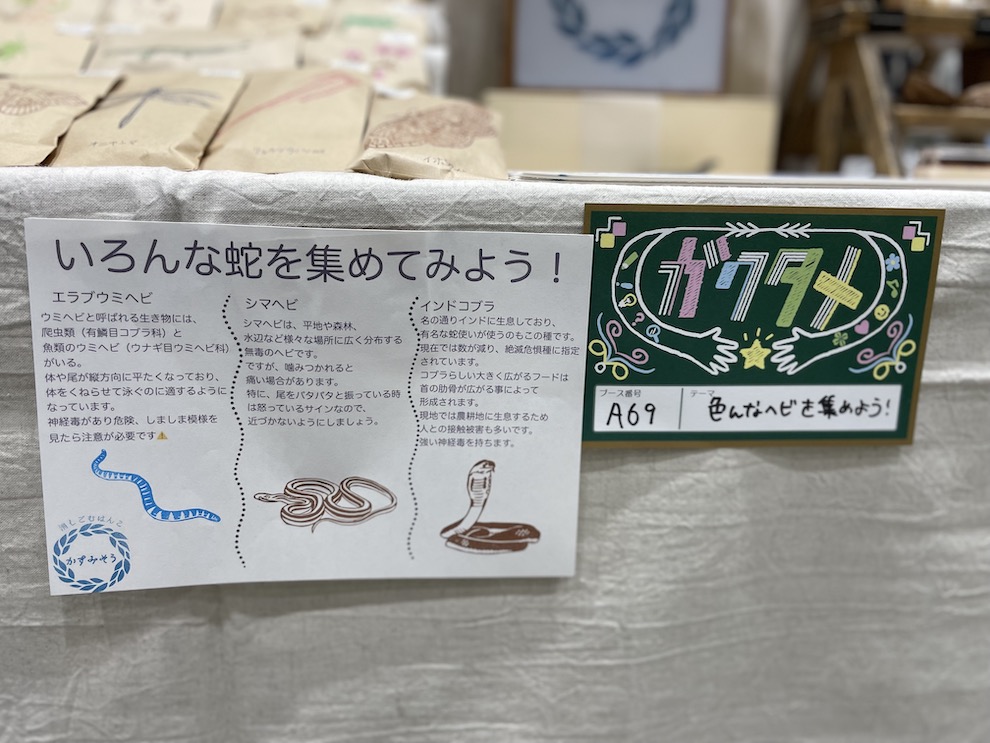 いろんな蛇を集めてみよう！
エラブウミヘビ
ウミヘビと呼ばれる生き物には、
爬虫類（有鱗目コブラ科）と
魚類のウミヘビ（ウナギ目ウミヘビ科）
がいる。
体や尾が縦方向に平たくなっており、
体をくねらせて泳ぐのに適するように
なっています。
神経毒があり危険、しましま模様を
見たら注意が必要です⚠️
消しごむはんこ
かすみそう
シマヘビ
シマヘビは、平地や森林、
水辺など様々な場所に広く分布する
無毒のヘビです。
ですが、噛みつかれると
痛い場合があります。
特に、尾をバタバタと振っている時
は怒っているサインなので、
近づかないようにしましょう。
インドコブラ
名の通りインドに生息しており、
有名な蛇使いが使うのもこの種です。
現在では数が減り、絶滅危惧種に指定
されています。
コブラらしい大きく広がるフードは
首の肋骨が広がる事によって
形成されます。
現地では農耕地に生息するため
人との接触被害も多いです。
強い神経毒を持ちます。
ガクタメ
ブース番号
A69
テーマ
色んなヘビを集めよう！